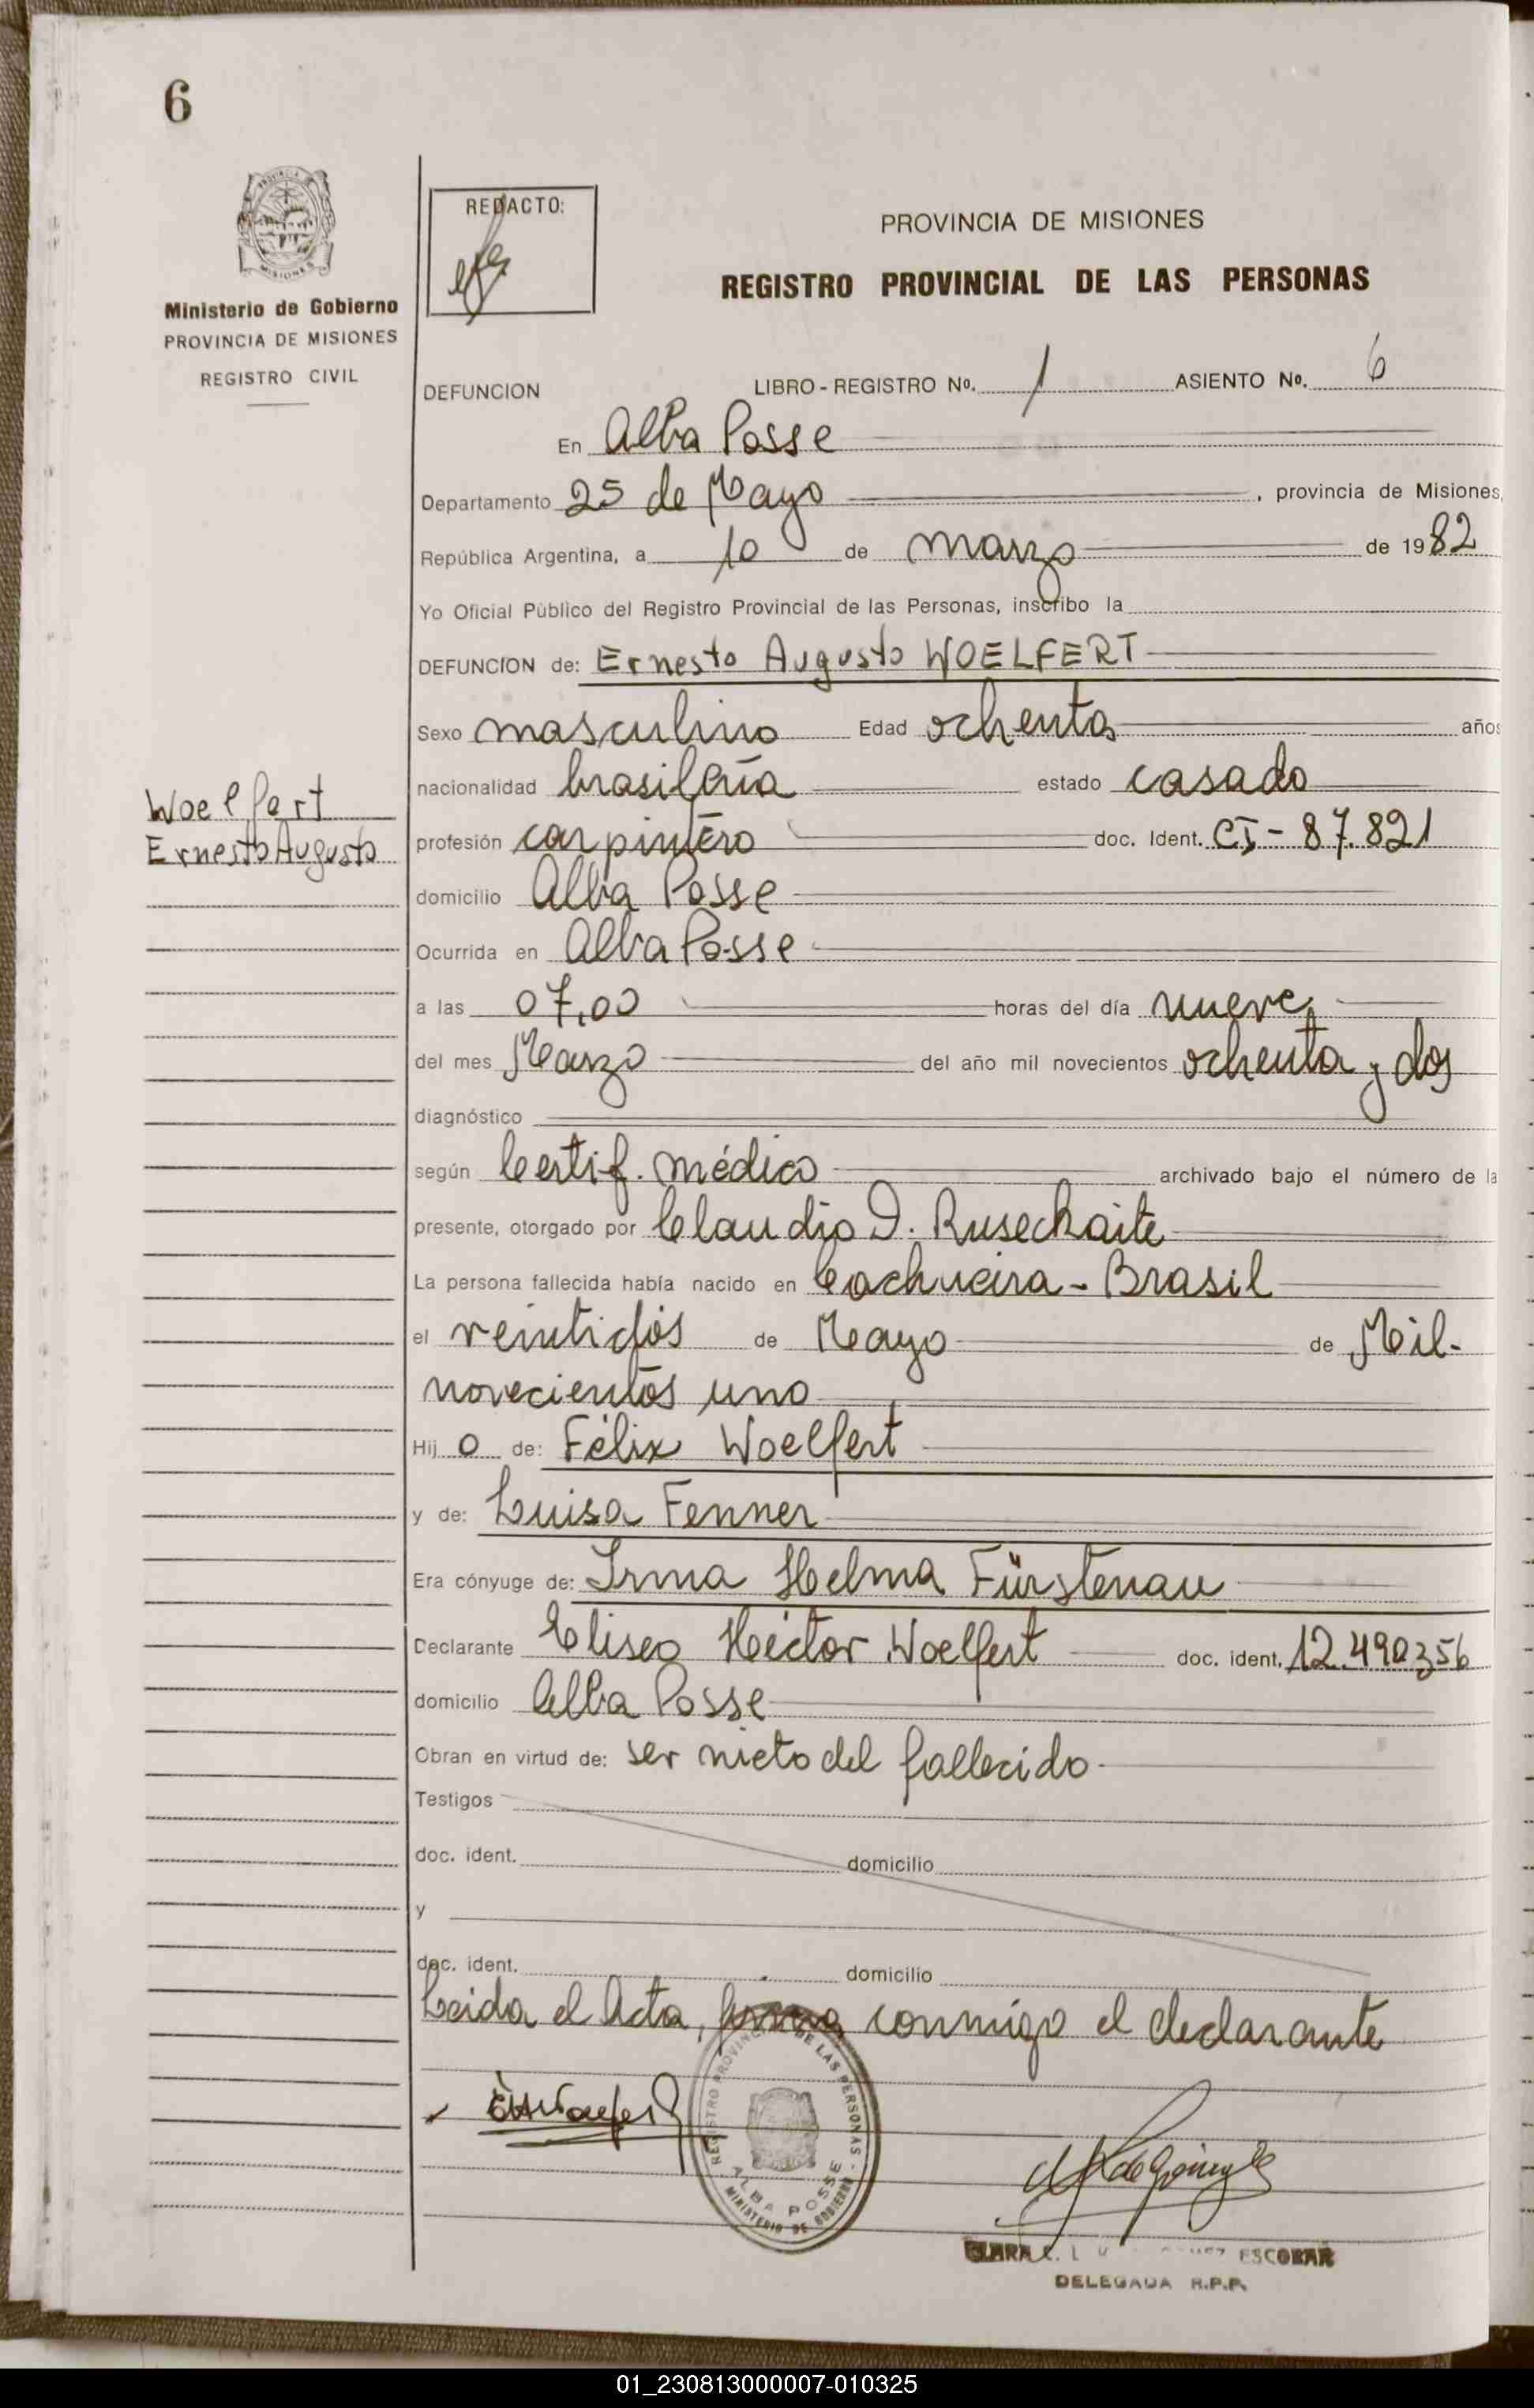 6
PROVINCIA DE
MISIONES
Ministerio de Gobierno
PROVINCIA DE MISIONES
REGISTRO CIVIL
REDACTO:
PROVINCIA DE MISIONES
REGISTRO PROVINCIAL DE LAS PERSONAS
DEFUNCION LIBRO - REGISTRO Nº. 1 ASIENTO Nº. 6
En Alba Posse
Departamento 25 de Mayo , provincia de Misiones,
República Argentina, a 10 de marzo de 1982
Yo Oficial Público del Registro Provincial de las Personas, inscribo la
DEFUNCION de: Ernesto Augusto WOELFERT
Sexo masculino Edad ochenta años
nacionalidad brasileña estado casado
Woelfert
Ernesto Augusto
profesión carpintero doc. Ident. CI - 87.821
domicilio Alba Posse
Ocurrida en Alba Posse
a las 07,00 horas del día nueve
del mes Marzo del año mil novecientos ochenta y dos
diagnóstico
según Certif. médico archivado bajo el número de la
presente, otorgado por Claudio D. Rusechaite
La persona fallecida había nacido en Cachueira - Brasil
el veintidós de Mayo de Mil-
novecientos uno
Hij o de: Félix Woelfert
y de: Luisa Fenner
Era cónyuge de: Irma Helma Fürstenau
Declarante Eliseo Héctor Woelfert doc. ident. 12.490356
domicilio Alba Posse
Obran en virtud de: ser nieto del fallecido
Testigos
doc. ident. domicilio
y
doc. ident. domicilio
Leida el Acta, firma conmigo el declarante
REGISTRO PROVINCIAL DE LAS PERSONAS
ALBA POSSE
MINISTERIO DE GOBIERNO
CLARA ESCOBAR
DELEGADA R.P.P.
01_230813000007-010325